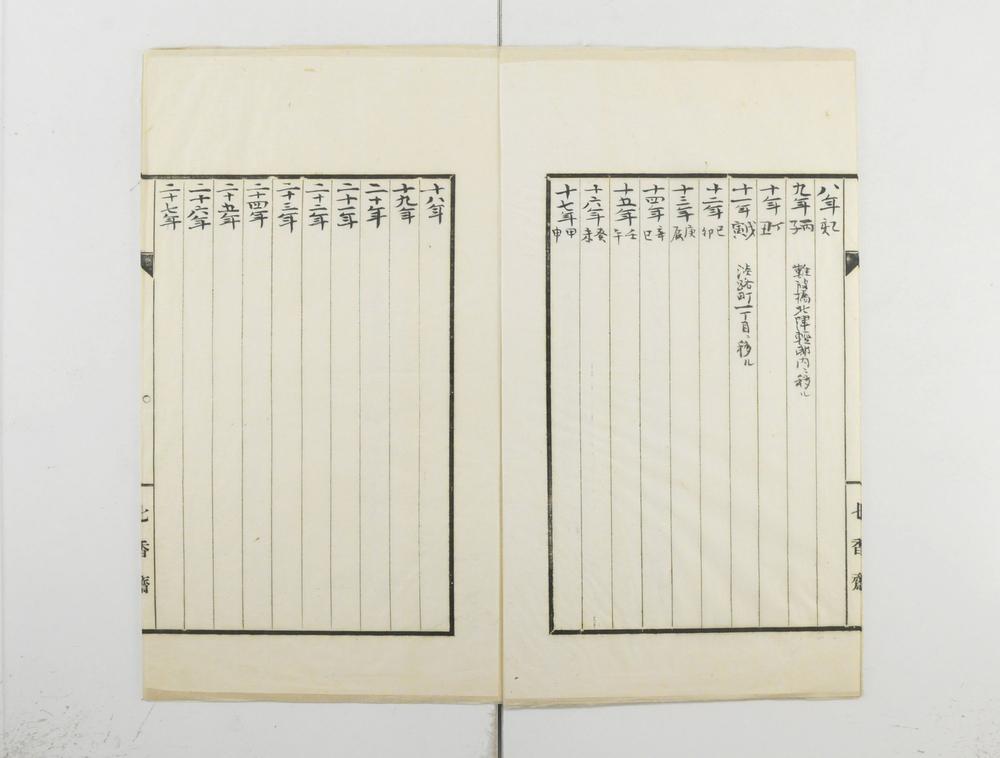 八年 乙亥
九年 丙子 難波橋北津輕邸内ニ移ル
十年 丁丑
十一年 戊寅 淡路町一丁目ニ移ル
十二年 己卯
十三年 庚辰
十四年 辛巳
十五年 壬午
十六年 癸未
十七年 甲申
七香齋
十八年
十九年
二十年
二十一年
二十二年
二十三年
二十四年
二十五年
二十六年
二十七年
七香齋